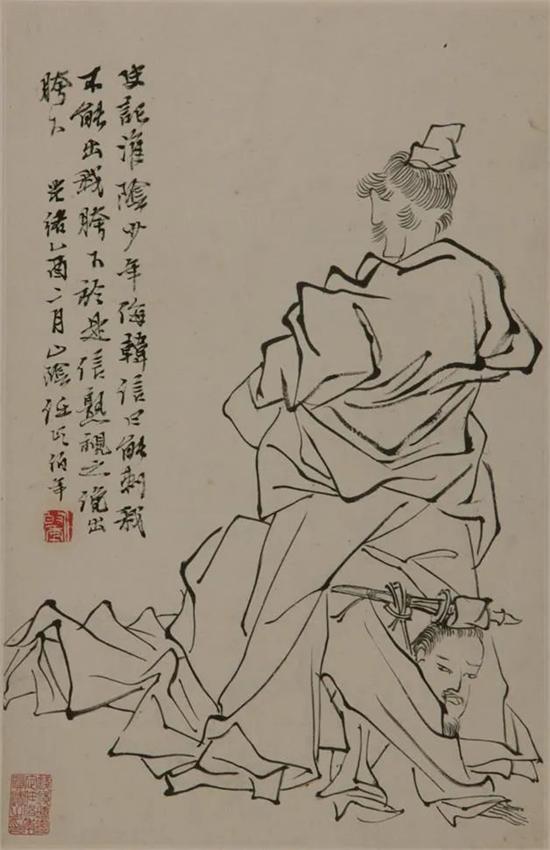 史記淮陰少年侮韓信曰能刺我
不能出我胯下於是信熟視之俛出
胯下 光緒乙酉二月山陰任頤伯年